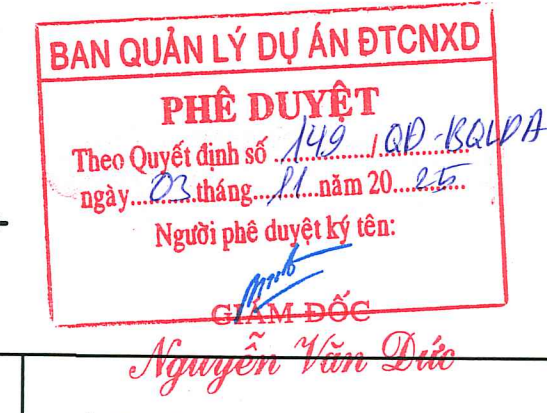 BAN QUẢN LÝ DỰ ÁN ĐTCNXD
PHÊ DUYỆT
Theo Quyết định số 149 / QĐ-BQLDA
ngày 03 tháng 11 năm 20 25
Người phê duyệt ký tên:
GIÁM ĐỐC
Nguyễn Văn Đức